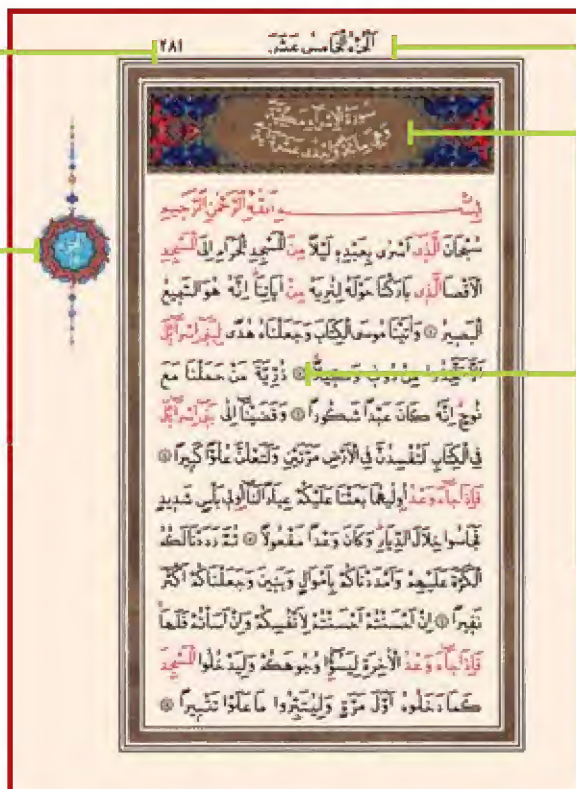 ٢٨١ اَلْجُزْءُ الْخَامِسُ عَشَرَ
سُورَةُ الْاِسْرَاءِ مَكِّيَّةٌ
وَهِيَ مِائَةٌ وَاِحْدٰى عَشْرَةَ اٰيَةً
بِسْــــــــمِ اللّٰهِ الرَّحْمٰنِ الرَّحِيمِ
سُبْحَانَ الَّذ۪ٓي اَسْرٰى بِعَبْدِه۪ لَيْلًا مِنَ الْمَسْجِدِ الْحَرَامِ اِلَى الْمَسْجِدِ
الْاَقْصَا الَّذ۪ي بَارَكْنَا حَوْلَهُ لِنُرِيَهُ مِنْ اٰيَاتِنَاۜ اِنَّهُ هُوَ السَّم۪يعُ
الْبَص۪يرُ ۞ وَاٰتَيْنَا مُوسَى الْكِتَابَ وَجَعَلْنَاهُ هُدًى لِبَن۪ٓي اِسْرَٓاء۪يلَ
اَلَّا تَتَّخِذُوا مِنْ دُون۪ي وَك۪يلًاۜ ۞ ذُرِّيَّةَ مَنْ حَمَلْنَا مَعَ
نُوحٍۜ اِنَّهُ كَانَ عَبْدًا شَكُورًا ۞ وَقَضَيْنَٓا اِلٰى بَن۪ٓي اِسْرَٓاء۪يلَ
فِي الْكِتَابِ لَتُفْسِدُنَّ فِي الْاَرْضِ مَرَّتَيْنِ وَلَتَعْلُنَّ عُلُوًّا كَب۪يرًا ۞
فَاِذَا جَٓاءَ وَعْدُ اُو۫لٰيهُمَا بَعَثْنَا عَلَيْكُمْ عِبَادًا لَنَٓا اُو۬ل۪ي بَأْسٍ شَد۪يدٍ
فَجَاسُوا خِلَالَ الدِّيَارِۜ وَكَانَ وَعْدًا مَفْعُولًا ۞ ثُمَّ رَدَدْنَا لَكُمُ
الْكَرَّةَ عَلَيْهِمْ وَاَمْدَدْنَاكُمْ بِاَمْوَالٍ وَبَن۪ينَ وَجَعَلْنَاكُمْ اَكْثَرَ
نَف۪يرًا ۞ اِنْ اَحْسَنْتُمْ اَحْسَنْتُمْ لِاَنْفُسِكُمْ وَاِنْ اَسَأْتُمْ فَلَهَاۜ
فَاِذَا جَٓاءَ وَعْدُ الْاٰخِرَةِ لِيَسُٓؤُ۫ا وُجُوهَكُمْ وَلِيَدْخُلُوا الْمَسْجِدَ
كَمَا دَخَلُوهُ اَوَّلَ مَرَّةٍ وَلِيُتَبِّرُوا مَا عَلَوْا تَتْب۪يرًا ۞